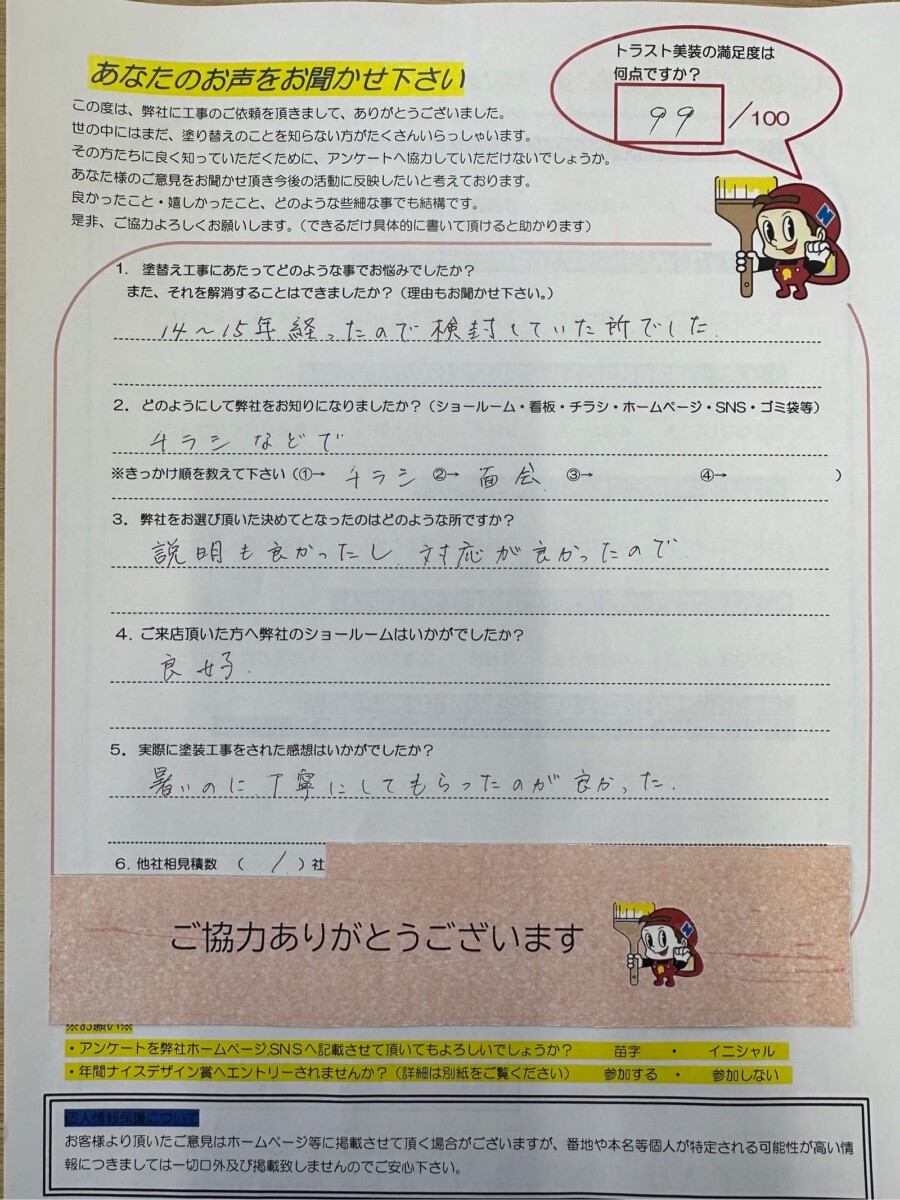 あなたのお声をお聞かせ下さい
トラスト美装の満足度は
何点ですか？
99／100
この度は、弊社に工事のご依頼を頂きまして、ありがとうございました。
世の中にはまだ、塗り替えのことを知らない方がたくさんいらっしゃいます。
その方たちに良く知っていただくために、アンケートへ協力していただけないでしょうか。
あなた様のご意見をお聞かせ頂き今後の活動に反映したいと考えております。
良かったこと・嬉しかったこと、どのような些細な事でも結構です。
是非、ご協力よろしくお願いします。（できるだけ具体的に書いて頂けると助かります）
N
1． 塗替え工事にあたってどのような事でお悩みでしたか？
また、それを解消することはできましたか？（理由もお聞かせ下さい。）
14～15年経ったので検封していた所でした.
2． どのようにして弊社をお知りになりましたか？（ショールーム・看板・チラシ・ホームページ・SNS・ゴミ袋等）
チラシなどで
※きっかけ順を教えて下さい（①→ チラシ ②→ 面会. ③→ ④→ ）
3． 弊社をお選び頂いた決めてとなったのはどのような所ですか？
説明も良かったし、対応が良かったので.
4． ご来店頂いた方へ弊社のショールームはいかがでしたか？
良好.
5． 実際に塗装工事をされた感想はいかがでしたか？
暑いのに、丁寧にしてもらったのが良かった.
6．他社相見積数 （ 1. ）社
ご協力ありがとうございます
N
※お願い※
・アンケートを弊社ホームページ,SNSへ記載させて頂いてもよろしいでしょうか？ 苗字 ・ イニシャル
・年間ナイスデザイン賞へエントリーされませんか？（詳細は別紙をご覧ください） 参加する ・ 参加しない
個人情報保護について
お客様より頂いたご意見はホームページ等に掲載させて頂く場合がございますが、番地や本名等個人が特定される可能性が高い情
報につきましては一切口外及び掲載致しませんのでご安心下さい。